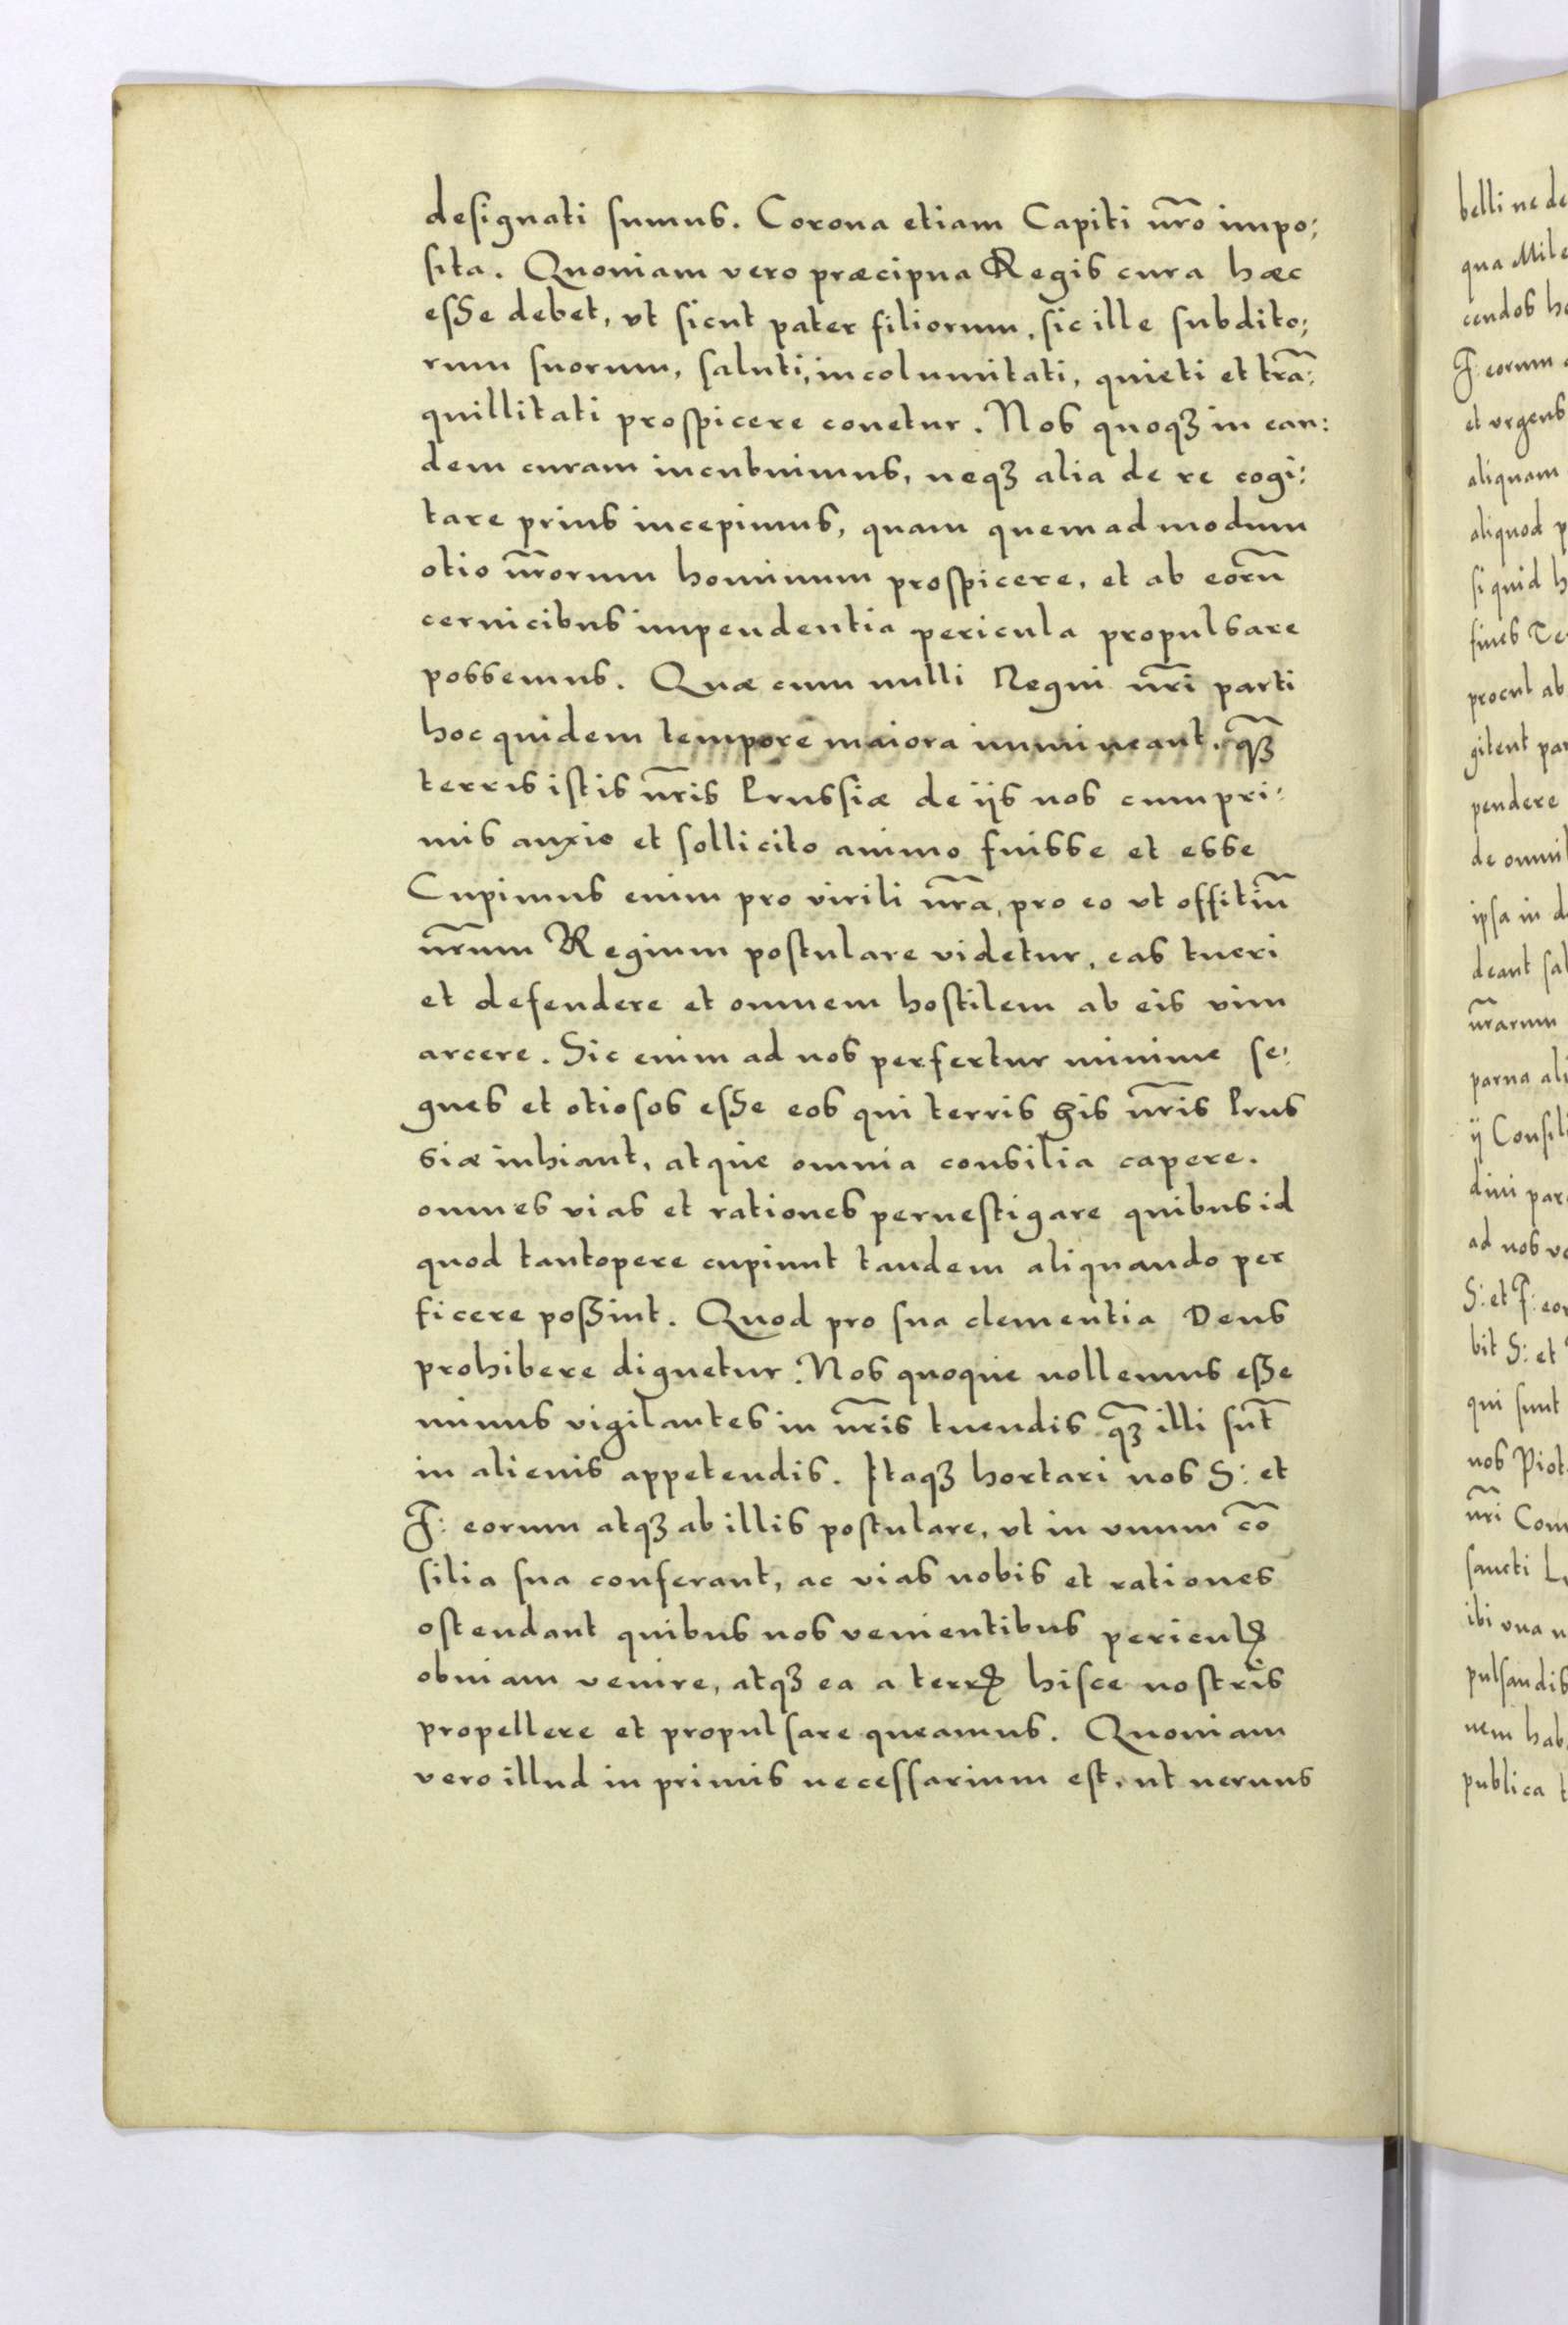 designati sumus. Corona etiam Capiti nr̃o impo:
sita. Quoniam vero præcipua Regis cura hæc
esse debet, vt sicut pater filiorum, sic ille subdito:
rum suorum, saluti, incolumitati, quieti et trã:
quillitati prospicere conetur. Nos quoqꝫ in ean:
dem curam incubuimus, neqꝫ alia de re cogi:
tare prius incepimus, quam quemadmodum
otio nr̃orum hominum prospicere, et ab eorũ
ceruicibus impendentia pericula propulsare
possemus. Quæ cum nulli Regni nr̃i parti
hoc quidem tempore maiora immineant, q̃ꝫ
terris istis nr̃is Prussiæ de ijs nos cum pri:
mis anxio et sollicito animo fuisse et esse
Cupimus enim pro virili nr̃a, pro eo vt offitiũ
nr̃um Regium postulare videtur, eas tueri
et defendere et omnem hostilem ab eis vim
arcere. Sic enim ad nos perfertur minime se:
gnes et otiosos esse eos qui terris his nr̃is Prus
siæ inhiant, atque omnia consilia capere.
omnes vias et rationes peruestigare quibus id
quod tantopere cupiunt tandem aliquando per
ficere poßint. Quod pro sua clementia Deus
prohibere dignetur. Nos quoque nollemus eße
minus vigilantes in nr̃is tuendis q̃ꝫ illi sũt
in alienis appetendis. Itaqꝫ hortari nos S: et
F: eorum atqꝫ ab illis postulare, vt in vnum cõ
silia sua conferant, ac vias nobis et rationes
ostendant quibus nos venientibus periculꝭ
obuiam venire, atqꝫ ea a terrꝭ hisce nostris
propellere et propulsare queamus. Quoniam
vero illud in primis necessarium est, ut neruus
belli ne de
qua Mile
cendos
F: eorum
et vrgens
aliquam
aliquod
si quid
fines
procul ab
gitent par
pendere
de omni
ipsa in
deant sal
nr̃arum
parua ali
ij Consili
diui
ad nos
S: et F: eor
bit S: et
qui sunt
nos Piot
nr̃i Com
sancti
ibi vna
pulsandis
nem hab
publica